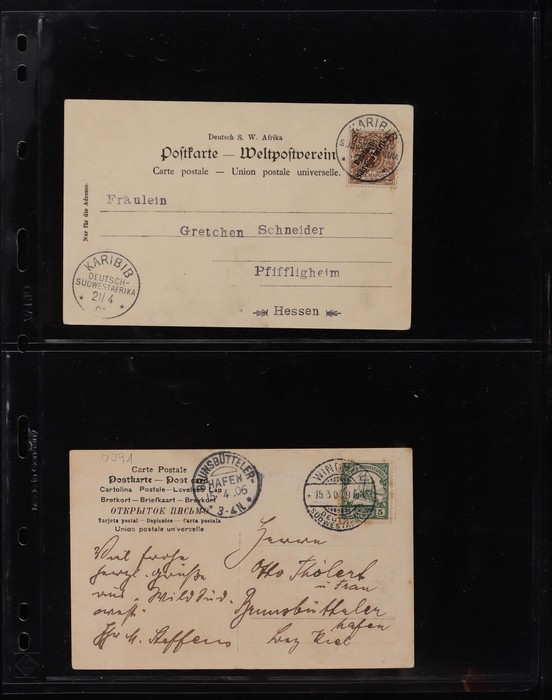 Deutsch S. W. Afrika
Postkarte — Weltpostverein
Carte postale — Union postale universelle.
Nur für die Adresse.
KARIBIB
Fräulein
Gretchen Schneider
Pfiffligheim
Hessen
KARIBIB
DEUTSCH-
SÜDWESTAFRIKA
* 21/4 *
0391
Carte Postale
Postkarte — Post card
Cartolina Postale — Levelező Lap
Bretkort — Briefkaart — Brevkort
ОТКРЫТОЕ ПИСЬМО
Tarjeta postal — Dopisnice — Carta postala
Union postale universelle
BRUNSBÜTTELER-
HAFEN
4.06
* 3-4N *
5
Viel frohe
herzl. Grüße
aus "Wild Süd-
west"
Ihr M. Steffens
Herrn
Otto Tholert
u Frau
Brunsbütteler
hafen
Bez Kiel